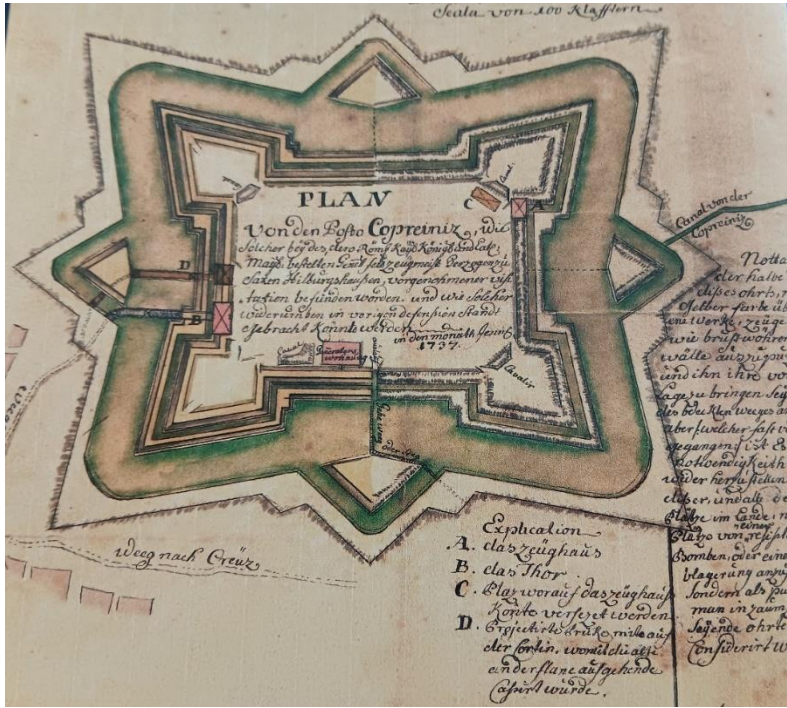 Scala von 100 Klafftern
PLAN
Von den Posto Copreiniz, wie
Solcher bey des, dero Röm: Kays: Königl: und Cath:
Mayt: bestelten Genrl: feld zeügmeistr Herzogen zu
Saxen Hilburgshaussen, vorgenohmener visi
tation befunden worden, und wie Solcher
widerumben in vorigen defension Standt
gebracht Könte werden
in den monath Jenner
1737.
C
A
Cavalr:
D
B
Cavalier
Canal von der
Copreiniz
Weeg
Weeg nach Creüz
Explication
A. das zeüghaus
B. das Thor.
C. Plaz worauf das zeüghauß
Könte versezet werden
D. Projectirte bruke mite auf
der Cortin, womit die alte
an der flanc aufgehende
Cassirt würde.
Notta
der halbe
dises ohrts,
gelber farbe üb
die werke, zeüge
wie brustwöhren
wälle auszupu
und ihn ihre vo
Lage zu bringen Sey
des bedeckten weeges
aber, welcher fast
gegangen ist
Notwendigkeith
wider herzustellen
diser, und all de
Pläze im Lande
einer
Plazo von
Bomben, oder eine
blagerung
Sondern als
man in zaum
ligende ohrte
Considerirt w